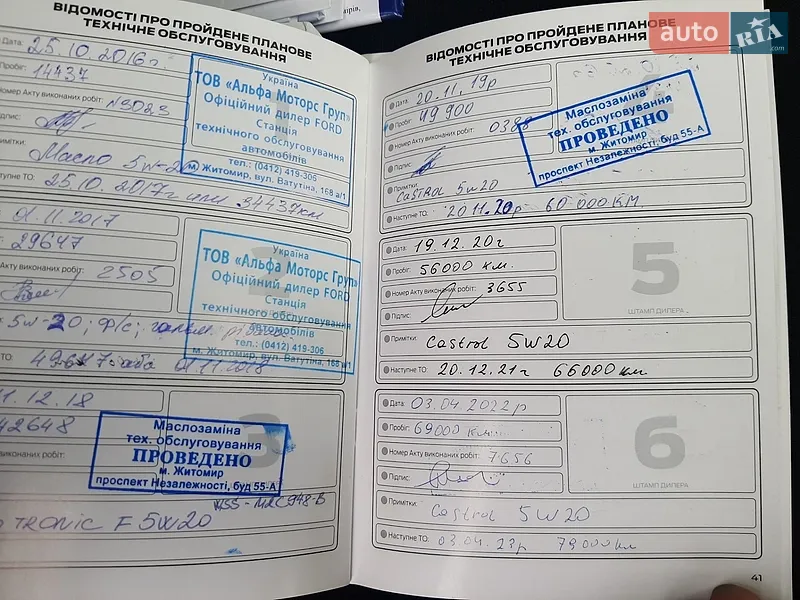 ВІДОМОСТІ ПРО ПРОЙДЕНЕ ПЛАНОВЕ
ТЕХНІЧНЕ ОБСЛУГОВУВАННЯ
Дата: 25.10.2016г.
Пробіг: 14437
Номер Акту виконаних робіт: №3023
Підпис:
Примітки:
Масло 5w-20
ТО: 25.10.2017г или 34437км
1
Україна
ТОВ «Альфа Моторс Груп»
Офіційний дилер FORD
Станція
технічного обслуговування
автомобілів
тел.: (0412) 419-306
м. Житомир, вул. Ватутіна, 168 а/1
01.11.2017
29647
Акту виконаних робіт: 2505
5w-20; ф/с;
ТО: 49647 або 01.11.2018
2
Україна
ТОВ «Альфа Моторс Груп»
Офіційний дилер FORD
Станція
технічного обслуговування
автомобілів
тел.: (0412) 419-306
м. Житомир, вул. Ватутіна, 168 а/1
1.12.18
42648
виконаних робіт:
3
Маслозаміна
тех. обслуговування
ПРОВЕДЕНО
м. Житомир
проспект Незалежності, буд 55-А
WSS-M2C948-B
TRONIC F 5W20
ВІДОМОСТІ ПРО ПРОЙДЕНЕ ПЛАНОВЕ
ТЕХНІЧНЕ ОБСЛУГОВУВАННЯ
auto RIA.com
Дата: 20.11.19р
Пробіг: 49900
Номер Акту виконаних робіт: 0388
Підпис:
Примітки:
CASTROL 5w20
Наступне ТО: 20.11.20р 60 000 КМ
Маслозаміна
тех. обслуговування
ПРОВЕДЕНО
м. Житомир
проспект Незалежності, буд 55-А
Дата: 19.12.20г
Пробіг: 56000 км.
Номер Акту виконаних робіт: 3655
Підпис:
5
ШТАМП ДИЛЕРА
Примітки: Castrol 5W20
Наступне ТО: 20.12.21г 66000км
Дата: 03.04.2022р
Пробіг: 69000 км
Номер Акту виконаних робіт: 7656
Підпис:
6
ШТАМП ДИЛЕРА
Примітки:
Castrol 5W20
Наступне ТО: 03.04.23р 79000км
41